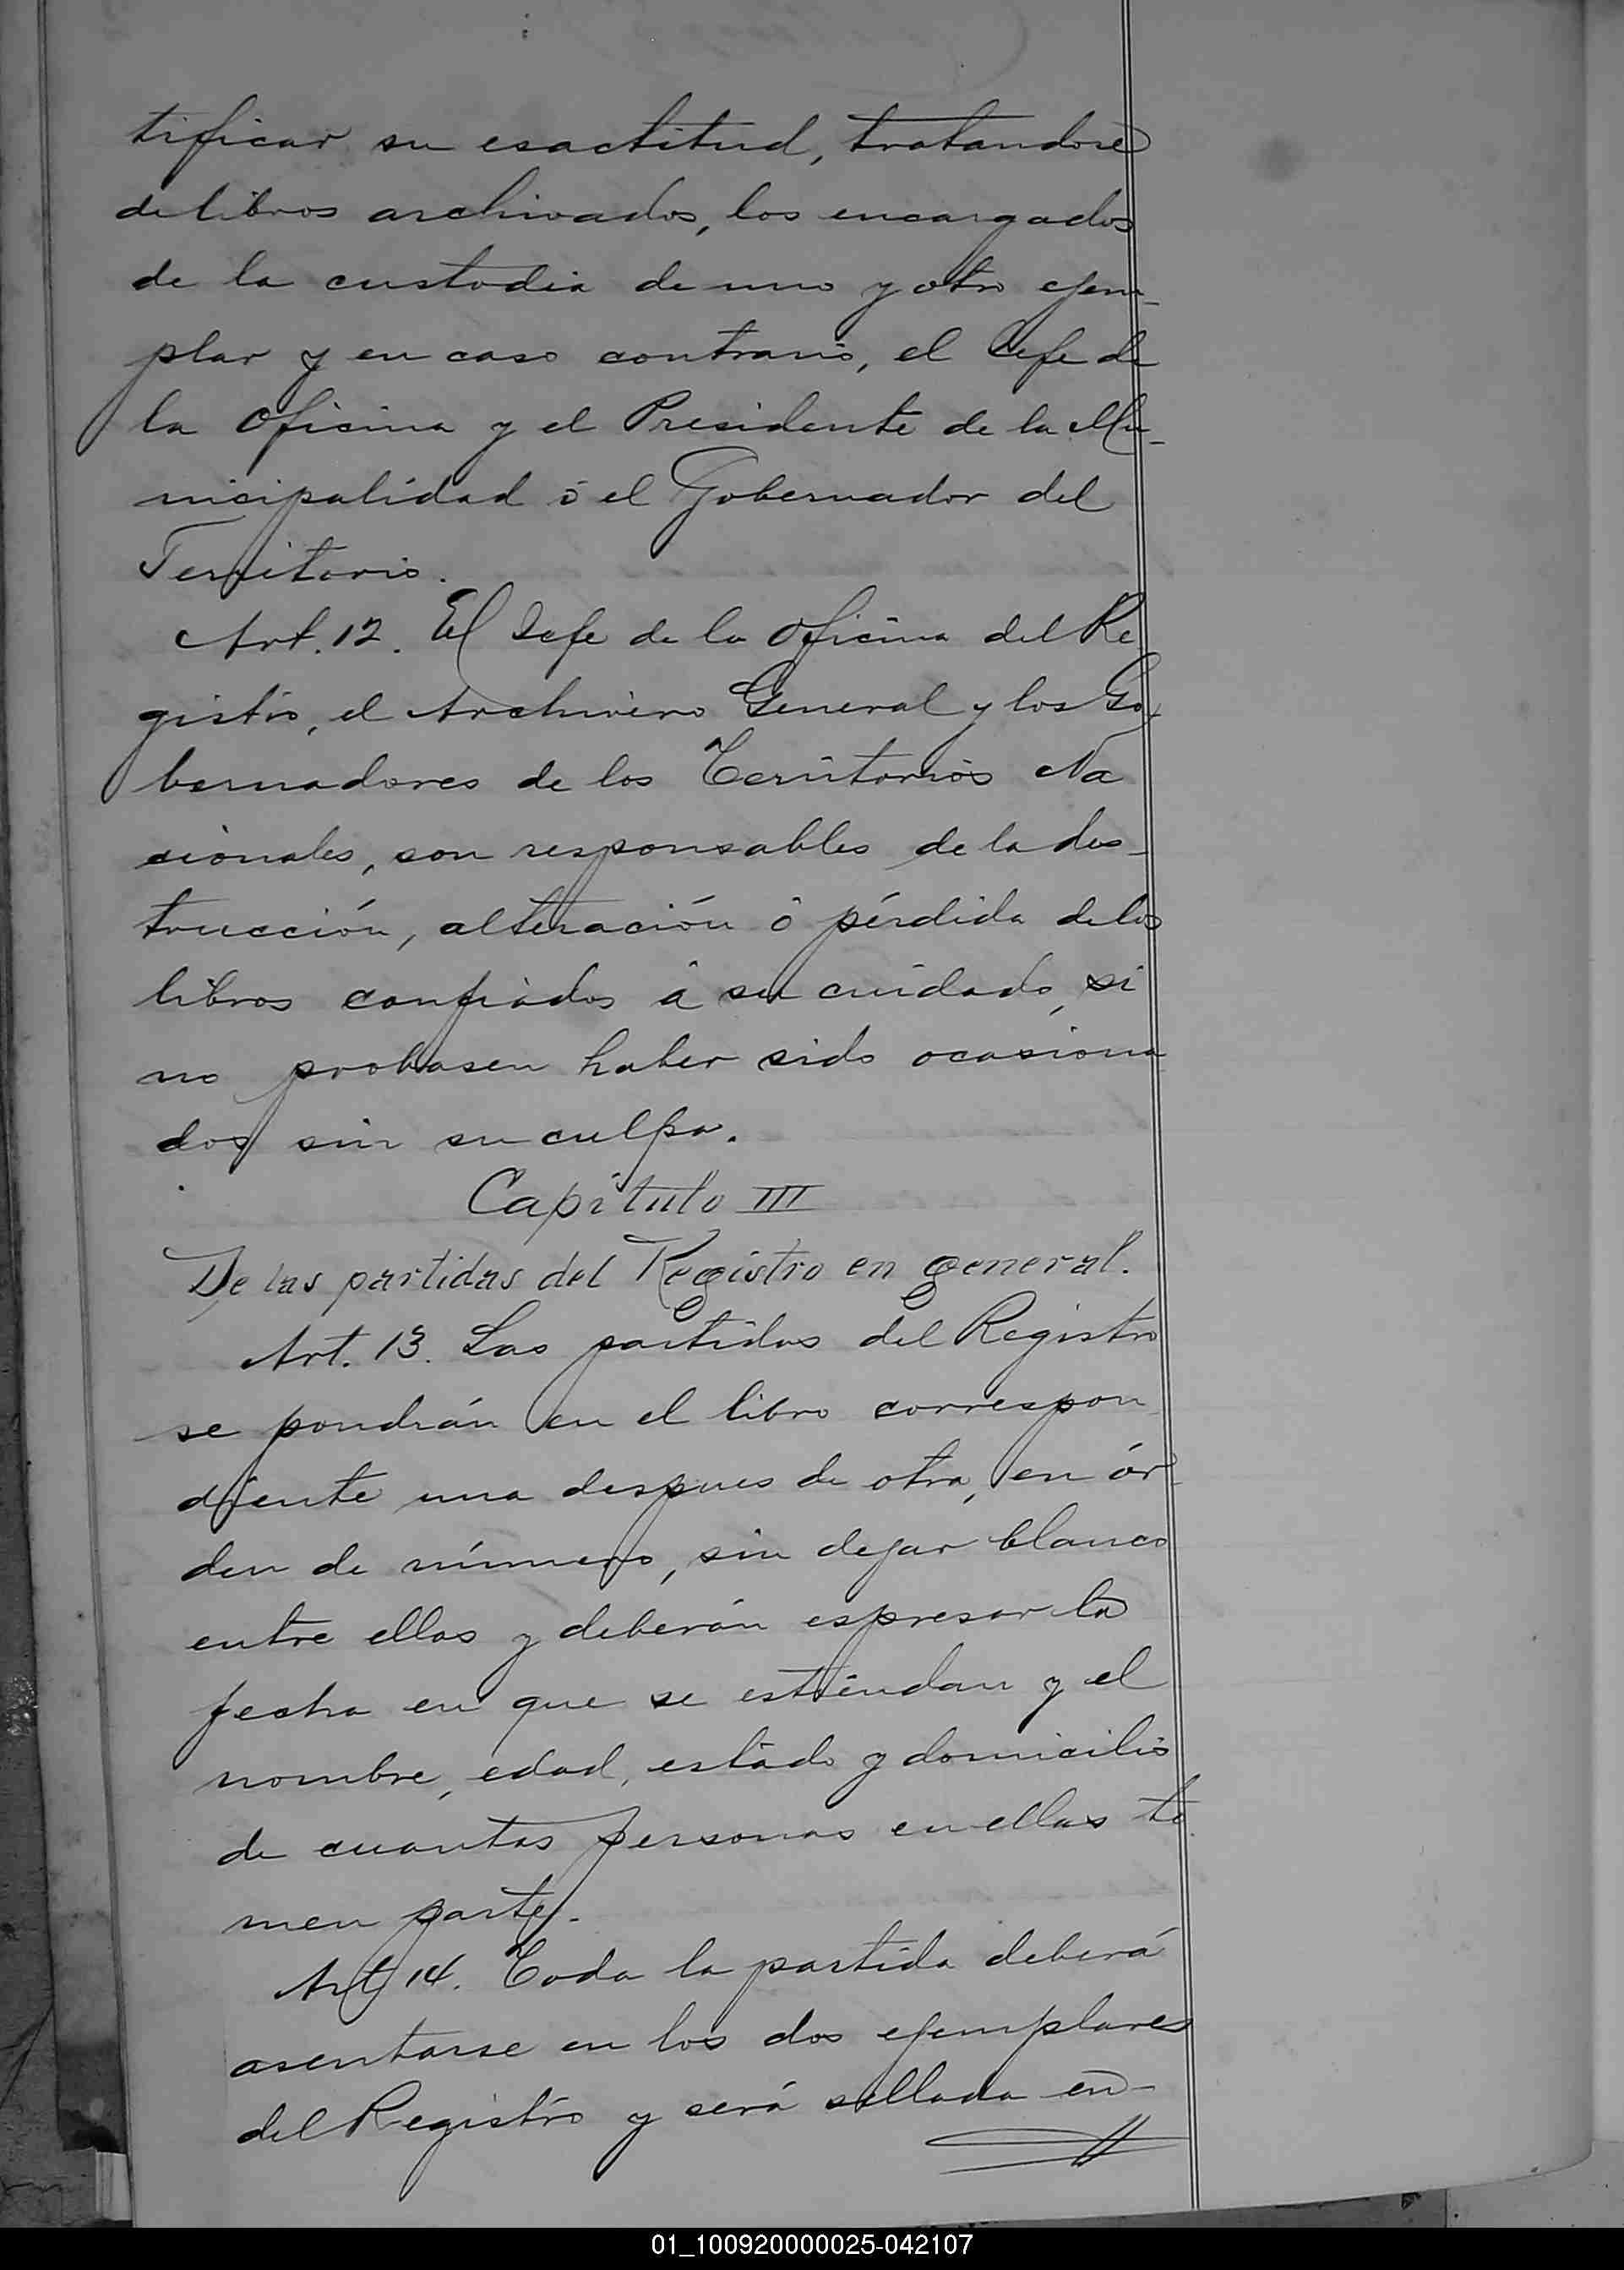 tificar su esactitud, tratandose
de libros archivados, los encargados
de la custodia de uno y otro ejem-
plar y en caso contrario, el Gefe de
la Oficina y el Presidente de la Mu-
nicipalidad ó el Gobernador del
Territorio.
Art. 12. El Gefe de la Oficina del Re
gistro, el Archivero General y los Go
bernadores de los Territorios Na
cionales, son responsables de la des-
trucción, alteración ó pérdida de los
libros confiados á su cuidado, si
no probasen haber sido ocasiona
dos sin su culpa.
Capítulo III
De las partidas del Registro en general.
Art. 13. Las partidas del Registro
se pondrán en el libro correspon
diente una despues de otra, en ór
den de número, sin dejar blanco
entre ellas y deberán espresar la
fecha en que se estiendan y el
nombre, edad, estado y domicilio
de cuantas personas en ellas to
men parte.
Art. 14. Toda la partida deberá
asentarse en los dos ejemplares
del Registro y será sellada en-
01_100920000025-042107